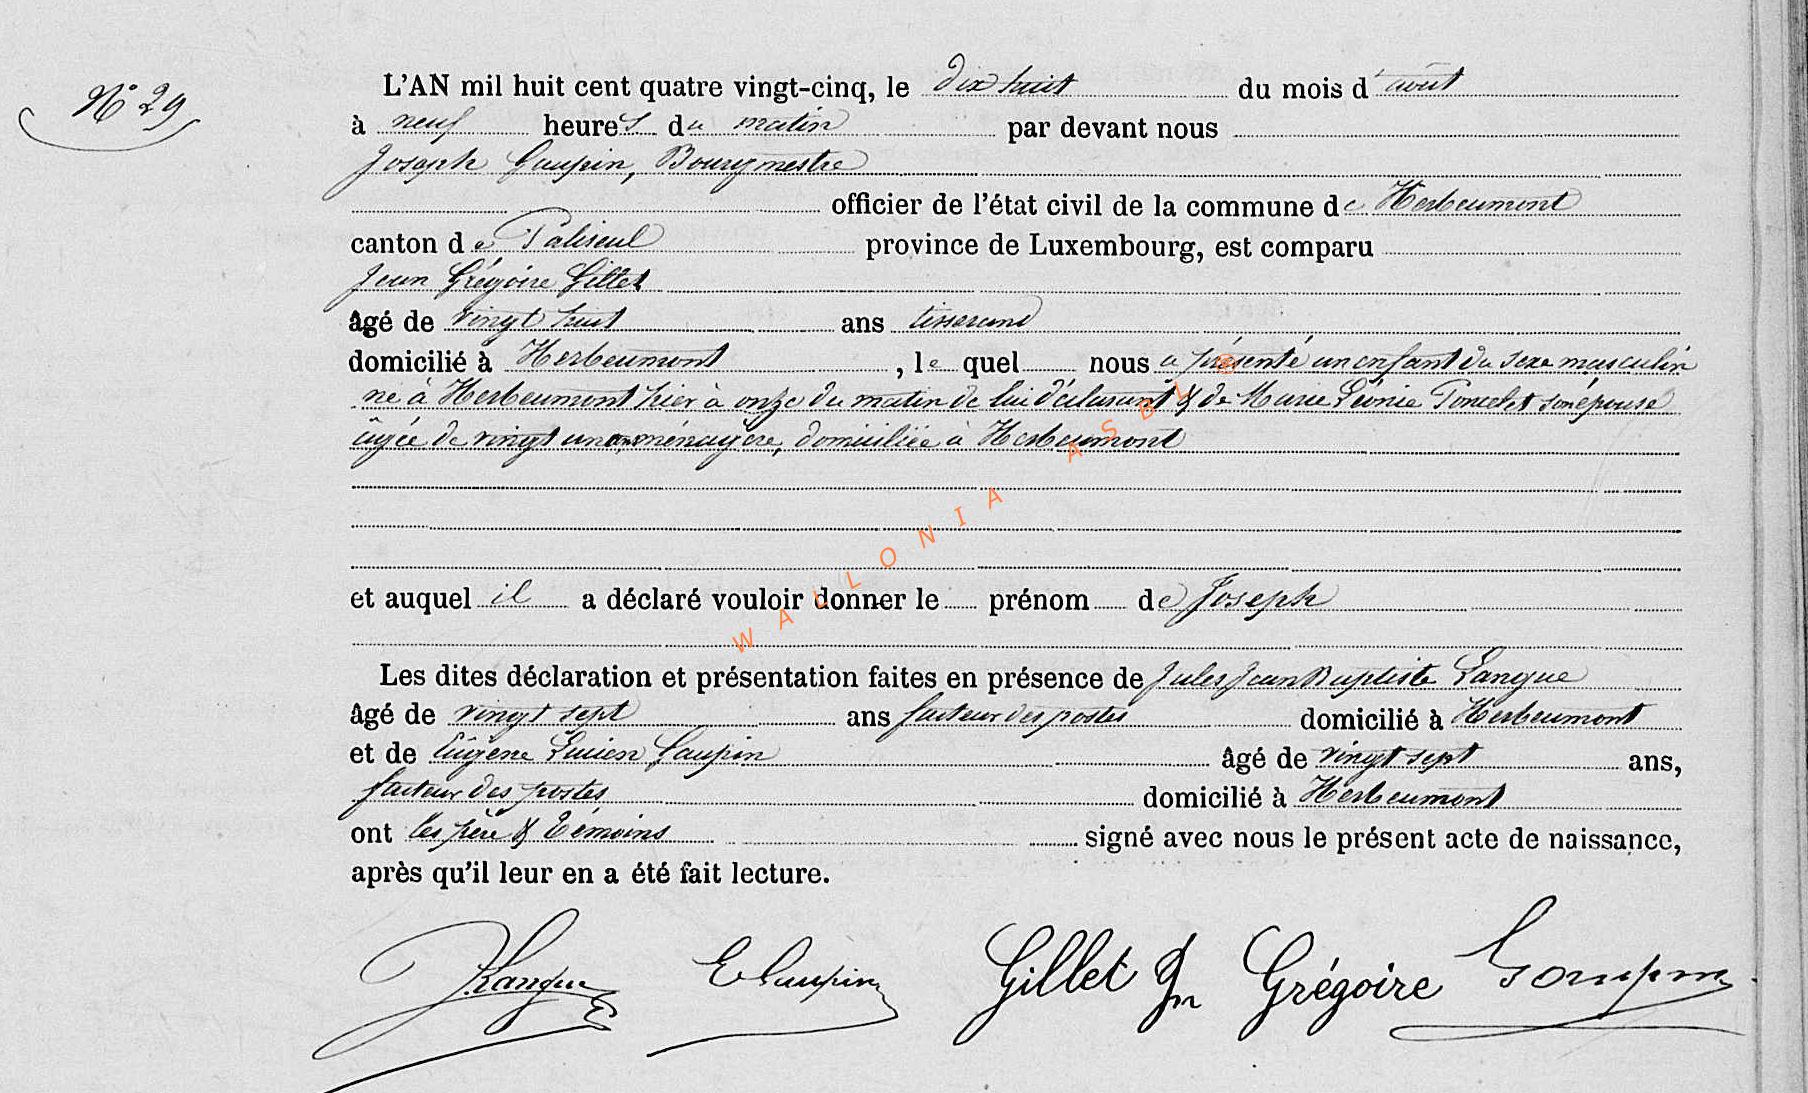 N° 29
L'AN mil huit cent quatre vingt-cinq, le dix huit du mois d'août
à neuf heures du matin par devant nous
Joseph Gaupin, Bourgmestre
officier de l'état civil de la commune de Herbeumont
canton de Paliseul province de Luxembourg, est comparu
Jean Grégoire Gillet
âgé de vingt huit ans tisserand
domicilié à Herbeumont, le quel nous a présenté un enfant du sexe masculin
né à Herbeumont hier à onze du matin de lui déclarant & de Marie Léonie Poncelet son épouse
âgée de vingt un ans ménagère, domiciliée à Herbeumont
et auquel il a déclaré vouloir donner le prénom de Joseph
Les dites déclaration et présentation faites en présence de Jules Jean Baptiste Langue
âgé de vingt sept ans facteur des postes domicilié à Herbeumont
et de Eugène Lucien Gaupin âgé de vingt sept ans,
facteur des postes domicilié à Herbeumont
ont les père & témoins signé avec nous le présent acte de naissance,
après qu'il leur en a été fait lecture.
JLangue EGaupin Gillet Jn Grégoire Goupin
WALLONIA ASBL ®